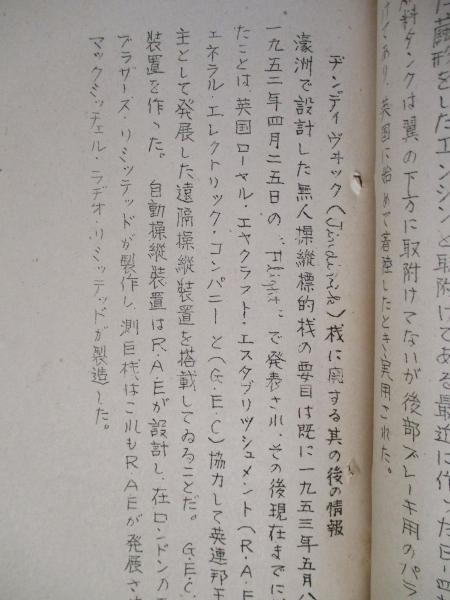 た蔽形をしたエンジンと取附けてある最近に作った日-四
料タンクは翼の下方に取附けてないが後部ブレーキ用のパラ
けてあり、英国に始めて着陸したとき実用された。
ヂンディヴヰック(Jindivik)桟に関する其の後の情報
濠洲で設計した無人操縦標的桟の要目は既に一九五三年五月八
一九五二年四月二五日の "Flight" で発表され、その後現在までに
たことは英国ローヤル・エヤクラフト・エスタブリッシュメント(R.A.E
ェネラルエレクトリック・コンパニーと(G.E.C)協力して英連邦王
主として発展した遠隔操縦装置を搭載してゐることだ。 G.E.C.
装置を作った。 自動操縦装置はR.A.Eが設計し、在ロンドンの
ブラザーズ・リミッテッドが製作し、測巨桟はこれもR.A.Eが発展さ
マックミッチェル・ラヂオ・リミッテッドが製造した。